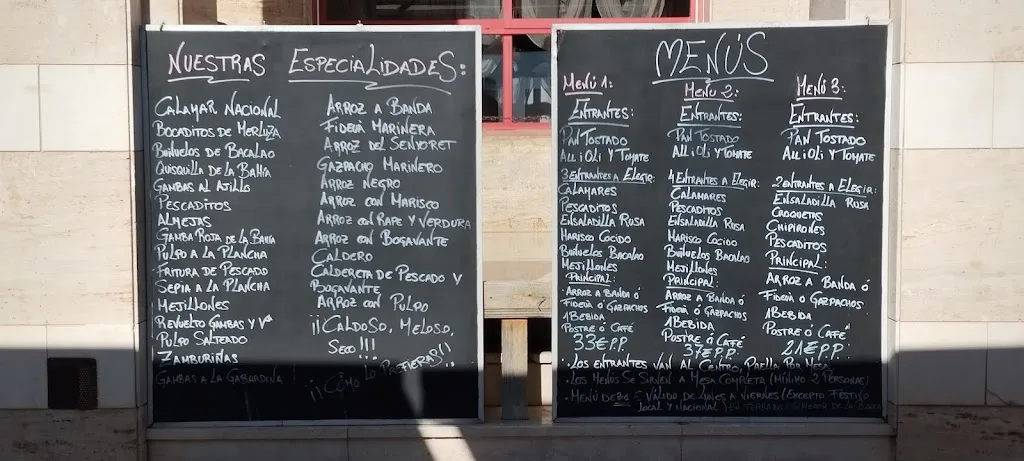 NUESTRAS ESPECIALIDADES:
CALAMAR NACIONAL
BOCADITOS DE MERLUZA
BUÑUELOS DE BACALAO
QUISQUILLA DE LA BAHÍA
GAMBAS AL AJILLO
PESCADITOS
ALMEJAS
GAMBA ROJA DE LA BAHÍA
PULPO A LA PLANCHA
FRITURA DE PESCADO
SEPIA A LA PLANCHA
MEJILLONES
REVUELTO GAMBAS Y Vª
PULPO SALTEADO
ZAMBURIÑAS
GAMBAS A LA GABARDINA
ARROZ A BANDA
FIDEUA MARINERA
ARROZ DEL SENYORET
GAZPACHO MARINERO
ARROZ NEGRO
ARROZ CON MARISCO
ARROZ CON RAPE Y VERDURA
ARROZ CON BOGAVANTE
CALDERO
CALDERETA DE PESCADO Y
BOGAVANTE
ARROZ CON PULPO
¡¡CALDOSO, MELOSO,
SECO!!!
¡¡CÓMO LO PREFIERAS!!
MENÚS
MENÚ 1:
ENTRANTES:
PAN TOSTADO
ALLIOLI Y TOMATE
3 ENTRANTES A ELEGIR:
CALAMARES
PESCADITOS
ENSALADILLA RUSA
MARISCO COCIDO
BUÑUELOS BACALAO
MEJILLONES
PRINCIPAL:
ARROZ A BANDA Ó
FIDEUA Ó GAZPACHOS
1 BEBIDA
POSTRE Ó CAFÉ
33€ P.P.
MENÚ 2:
ENTRANTES:
PAN TOSTADO
ALLIOLI Y TOMATE
4 ENTRANTES A ELEGIR:
CALAMARES
PESCADITOS
ENSALADILLA RUSA
MARISCO COCIDO
BUÑUELOS BACALAO
MEJILLONES
PRINCIPAL:
ARROZ A BANDA Ó
FIDEUA Ó GAZPACHOS
1 BEBIDA
POSTRE Ó CAFÉ
37€ P.P.
MENÚ 3:
ENTRANTES:
PAN TOSTADO
ALLIOLI Y TOMATE
2 ENTRANTES A ELEGIR:
ENSALADILLA RUSA
CROQUETAS
CHIPIRONES
PESCADITOS
PRINCIPAL:
ARROZ A BANDA Ó
FIDEUA Ó GAZPACHOS
1 BEBIDA
POSTRE Ó CAFÉ
21€ P.P.
·LOS ENTRANTES VAN AL CENTRO, PAELLA POR MESA
·LOS MENÚS SE SIRVEN A MESA COMPLETA (MÍNIMO 2 PERSONAS)
·MENÚ DE € VÁLIDO DE LUNES A VIERNES (EXCEPTO FESTIVO
LOCAL Y NACIONAL) DE LA